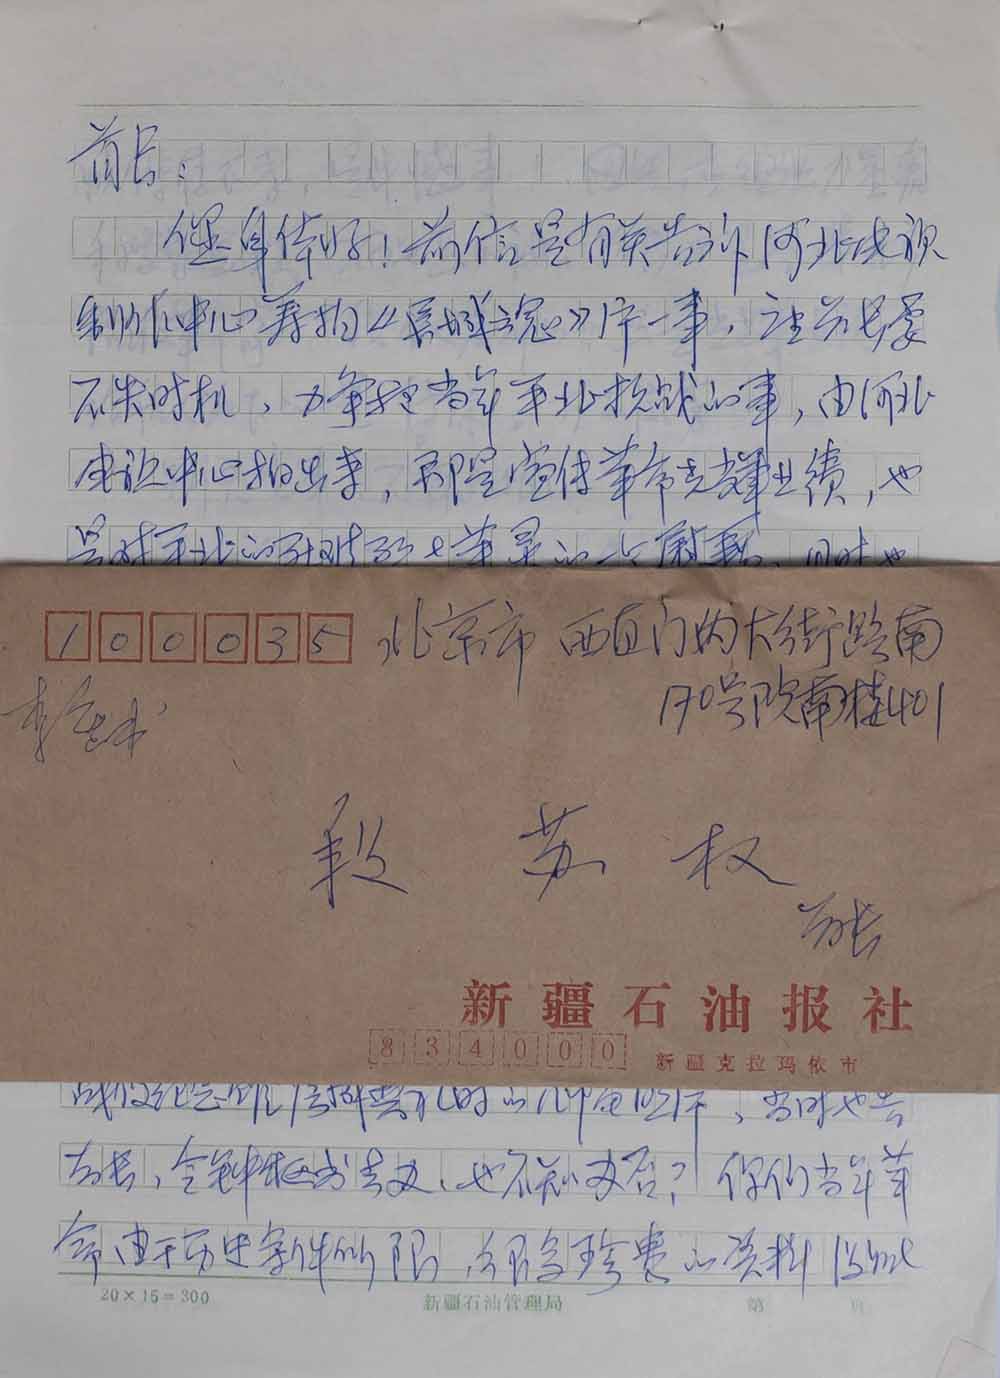 首长：
您身体好！前信是有关告诉河北电视
制作中心筹拍《长城之魂》片一事，让首长要
不失时机、力争把当年平北抗战的事，由河北
电视中心拍出来，那是宣传革命光辉业绩，也
是对平北的
同时也
100035
北京市 西直门内大街路南
170号院南楼401
段苏权
首长
新疆石油报社
834000
新疆克拉玛依市
当时也告
首长，
也不知
你们当年革
命，由于历史条件所限，很多珍贵的资料
20×15=300
新疆石油管理局
第 页